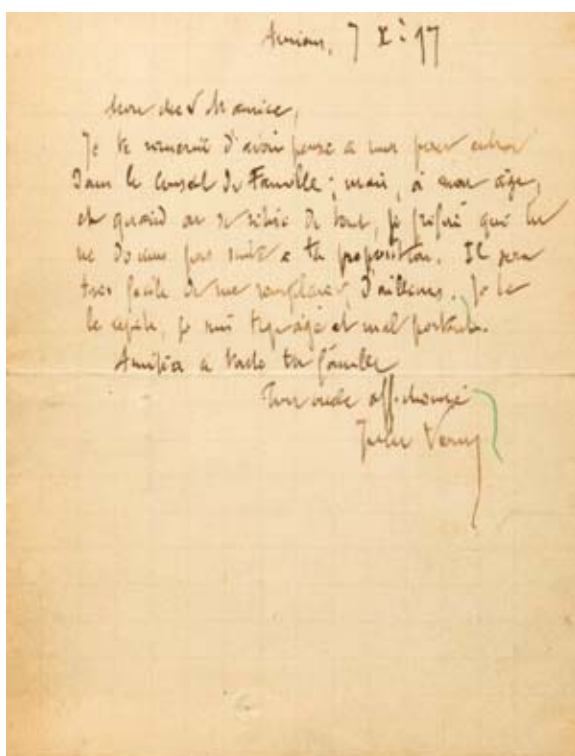 Amiens, 7 Xe 97
Mon cher Maurice,
Je te remercie d'avoir pensé à moi pour entrer
Dans le Conseil de Famille ; mais, à mon âge,
et quand on se retire de tout, je préfère que tu
ne donnes pas suite à ta proposition. Il sera
très facile de me remplacer, d'ailleurs. Je te
le répète, je suis trop âgé et mal portant.
Amitiés à toute ta famille
Ton oncle affectionné
Jules Verne